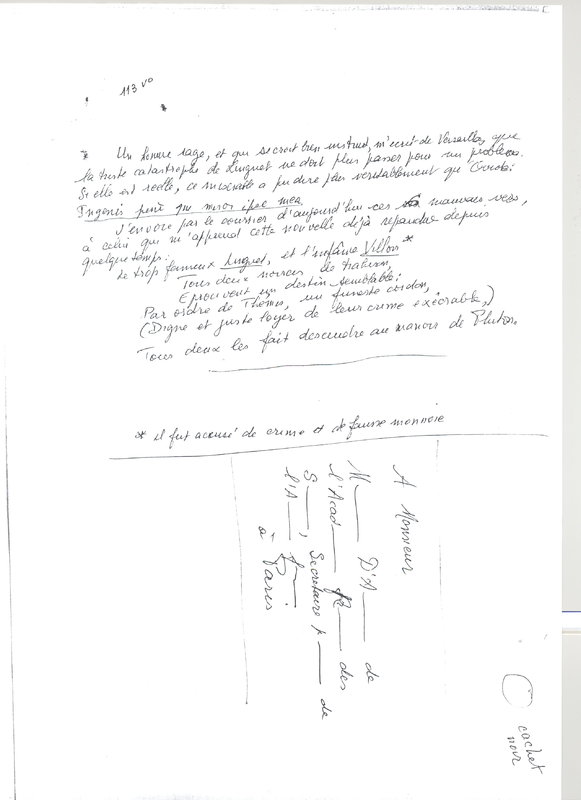 113 vo
* Un homme sage, et qui se croit bien instruit, m'écrit de Versailles, que
la triste catastrophe de Linguet ne doit plus passer pour un problème.
Si elle est réelle, ce misérable a pu dire plus véritablement qu'Ovide:
Ingenio perii qui miser ipse meo
J'envoye par le courrier d'aujourd'hui ces mauvais vers,
à celui qui m'apprend cette nouvelle déjà répandue depuis
quelque temps:
Le trop fameux Linguet, et l'infâme Villon *
Tous deux noircis de trahison,
Eprouvent un destin semblable:
Par ordre de Thémis, un funeste cordon,
(Digne et juste loyer de leur crime exécrable,)
Tous deux les fait descendre au manoir de Pluton.
* il fut accusé de crime et de fausse monnoie
A Monsieur
M—— D'A—— de
l'Acad—— fr—— des
S——, Secretaire p—— de
l'A—— f——
à Paris
cachet
noir